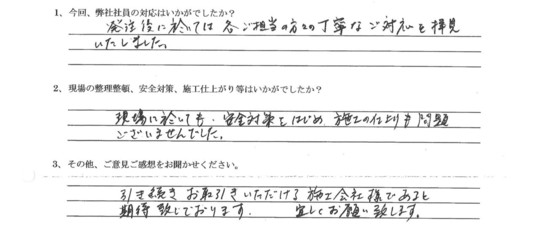 1、今回、弊社社員の対応はいかがでしたか?
発注後に於いては各ご担当の方々の丁寧なご対応を拝見
いたしました。
2、現場の整理整頓、安全対策、施工仕上がり等はいかがでしたか?
現場に於いても、安全対策をはじめ、施工の仕上りも問題
ございませんでした。
3、その他、ご意見ご感想をお聞かせください。
引き続きお取引きいただける施工会社様であると
期待致しております。 宜しくお願い致します。